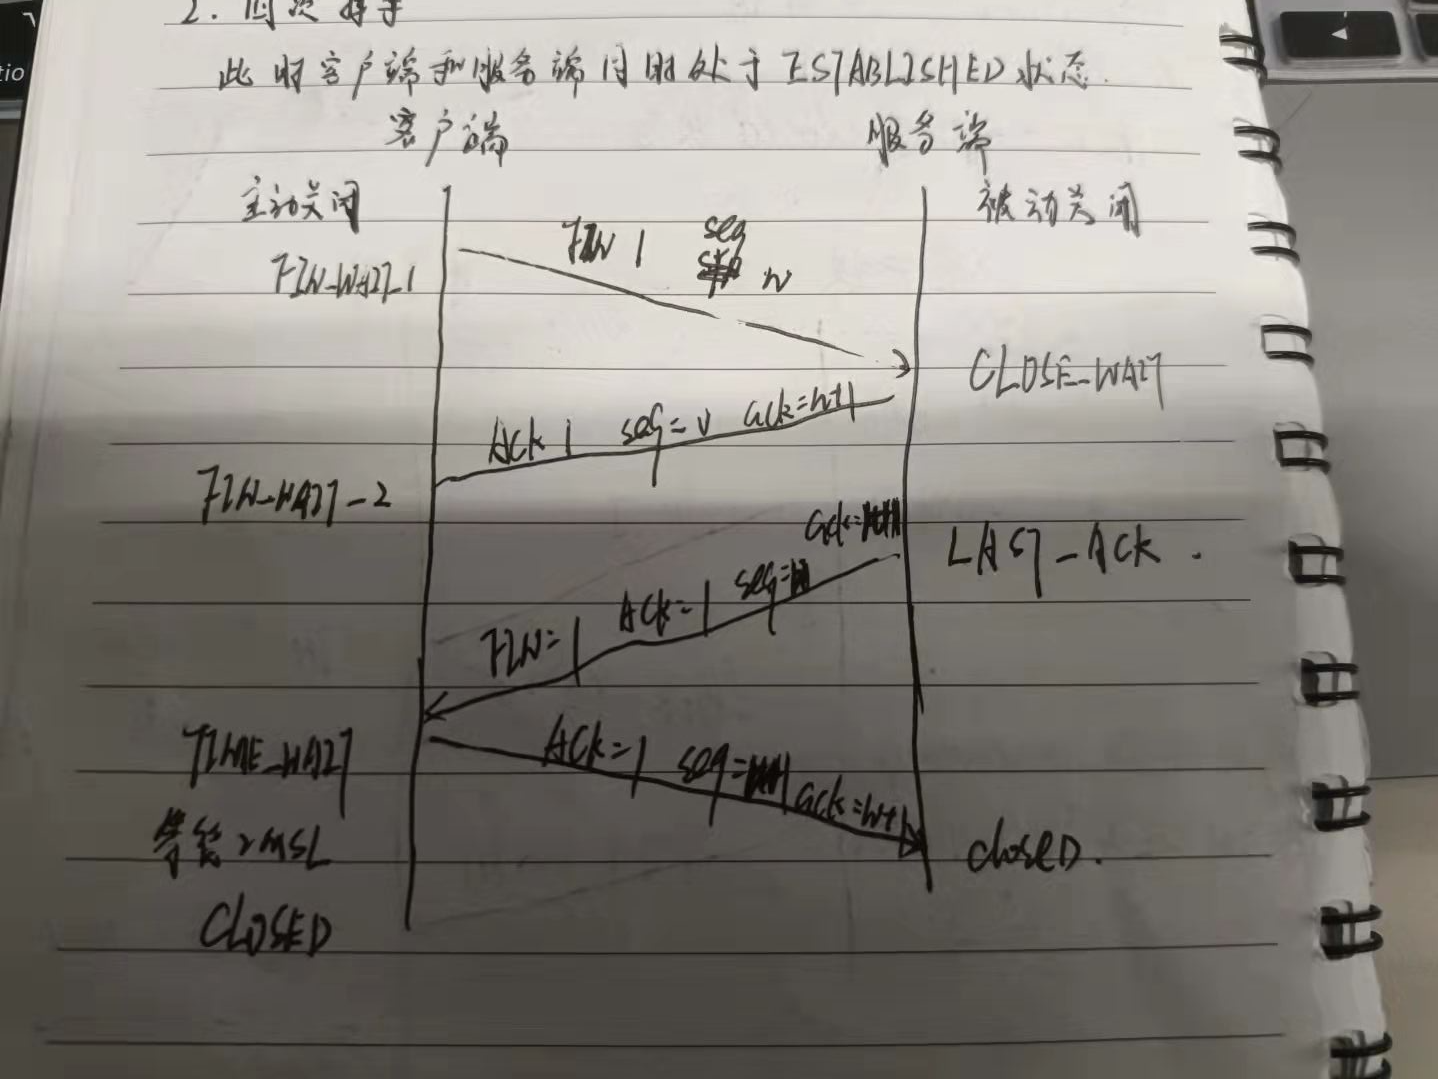 tio
2. 四次挥手
此时客户端和服务端同时处于ESTABLISHED状态.
客户端 服务端
主动关闭 被动关闭
FIN 1 seq
FIN-WAIT-1
CLOSE-WAIT
ACK 1 seq=v ack=u+1
FIN-WAIT-2
LAST-ACK.
FIN=1 ACK=1 seq= ack=
TIME-WAIT
ACK=1 seq= ack=w+1
等待2MSL
closeD.
CLOSED